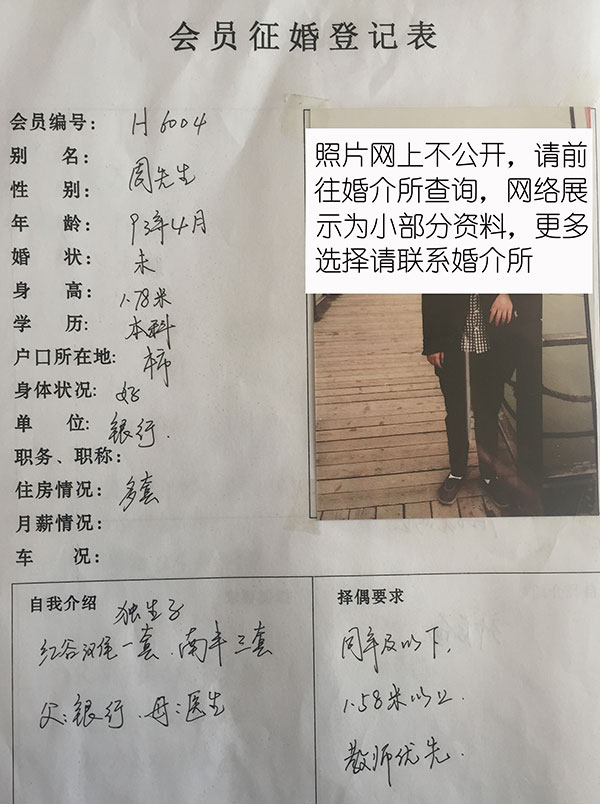 会员征婚登记表
会员编号: H6004
别 名: 周先生
性 别:
年 龄: 93年4月
婚 状: 未
身 高: 1.78米
学 历: 本科
户口所在地: 本市
身体状况: 好
单 位: 银行.
职务、职称:
住房情况: 多套
月薪情况:
车 况:
照片网上不公开，请前
往婚介所查询，网络展
示为小部分资料，更多
选择请联系婚介所
自我介绍 独生子
红谷滩一套.南丰三套
父:银行.母:医生
择偶要求
同年及以下,
1.58米以上.
教师优先.